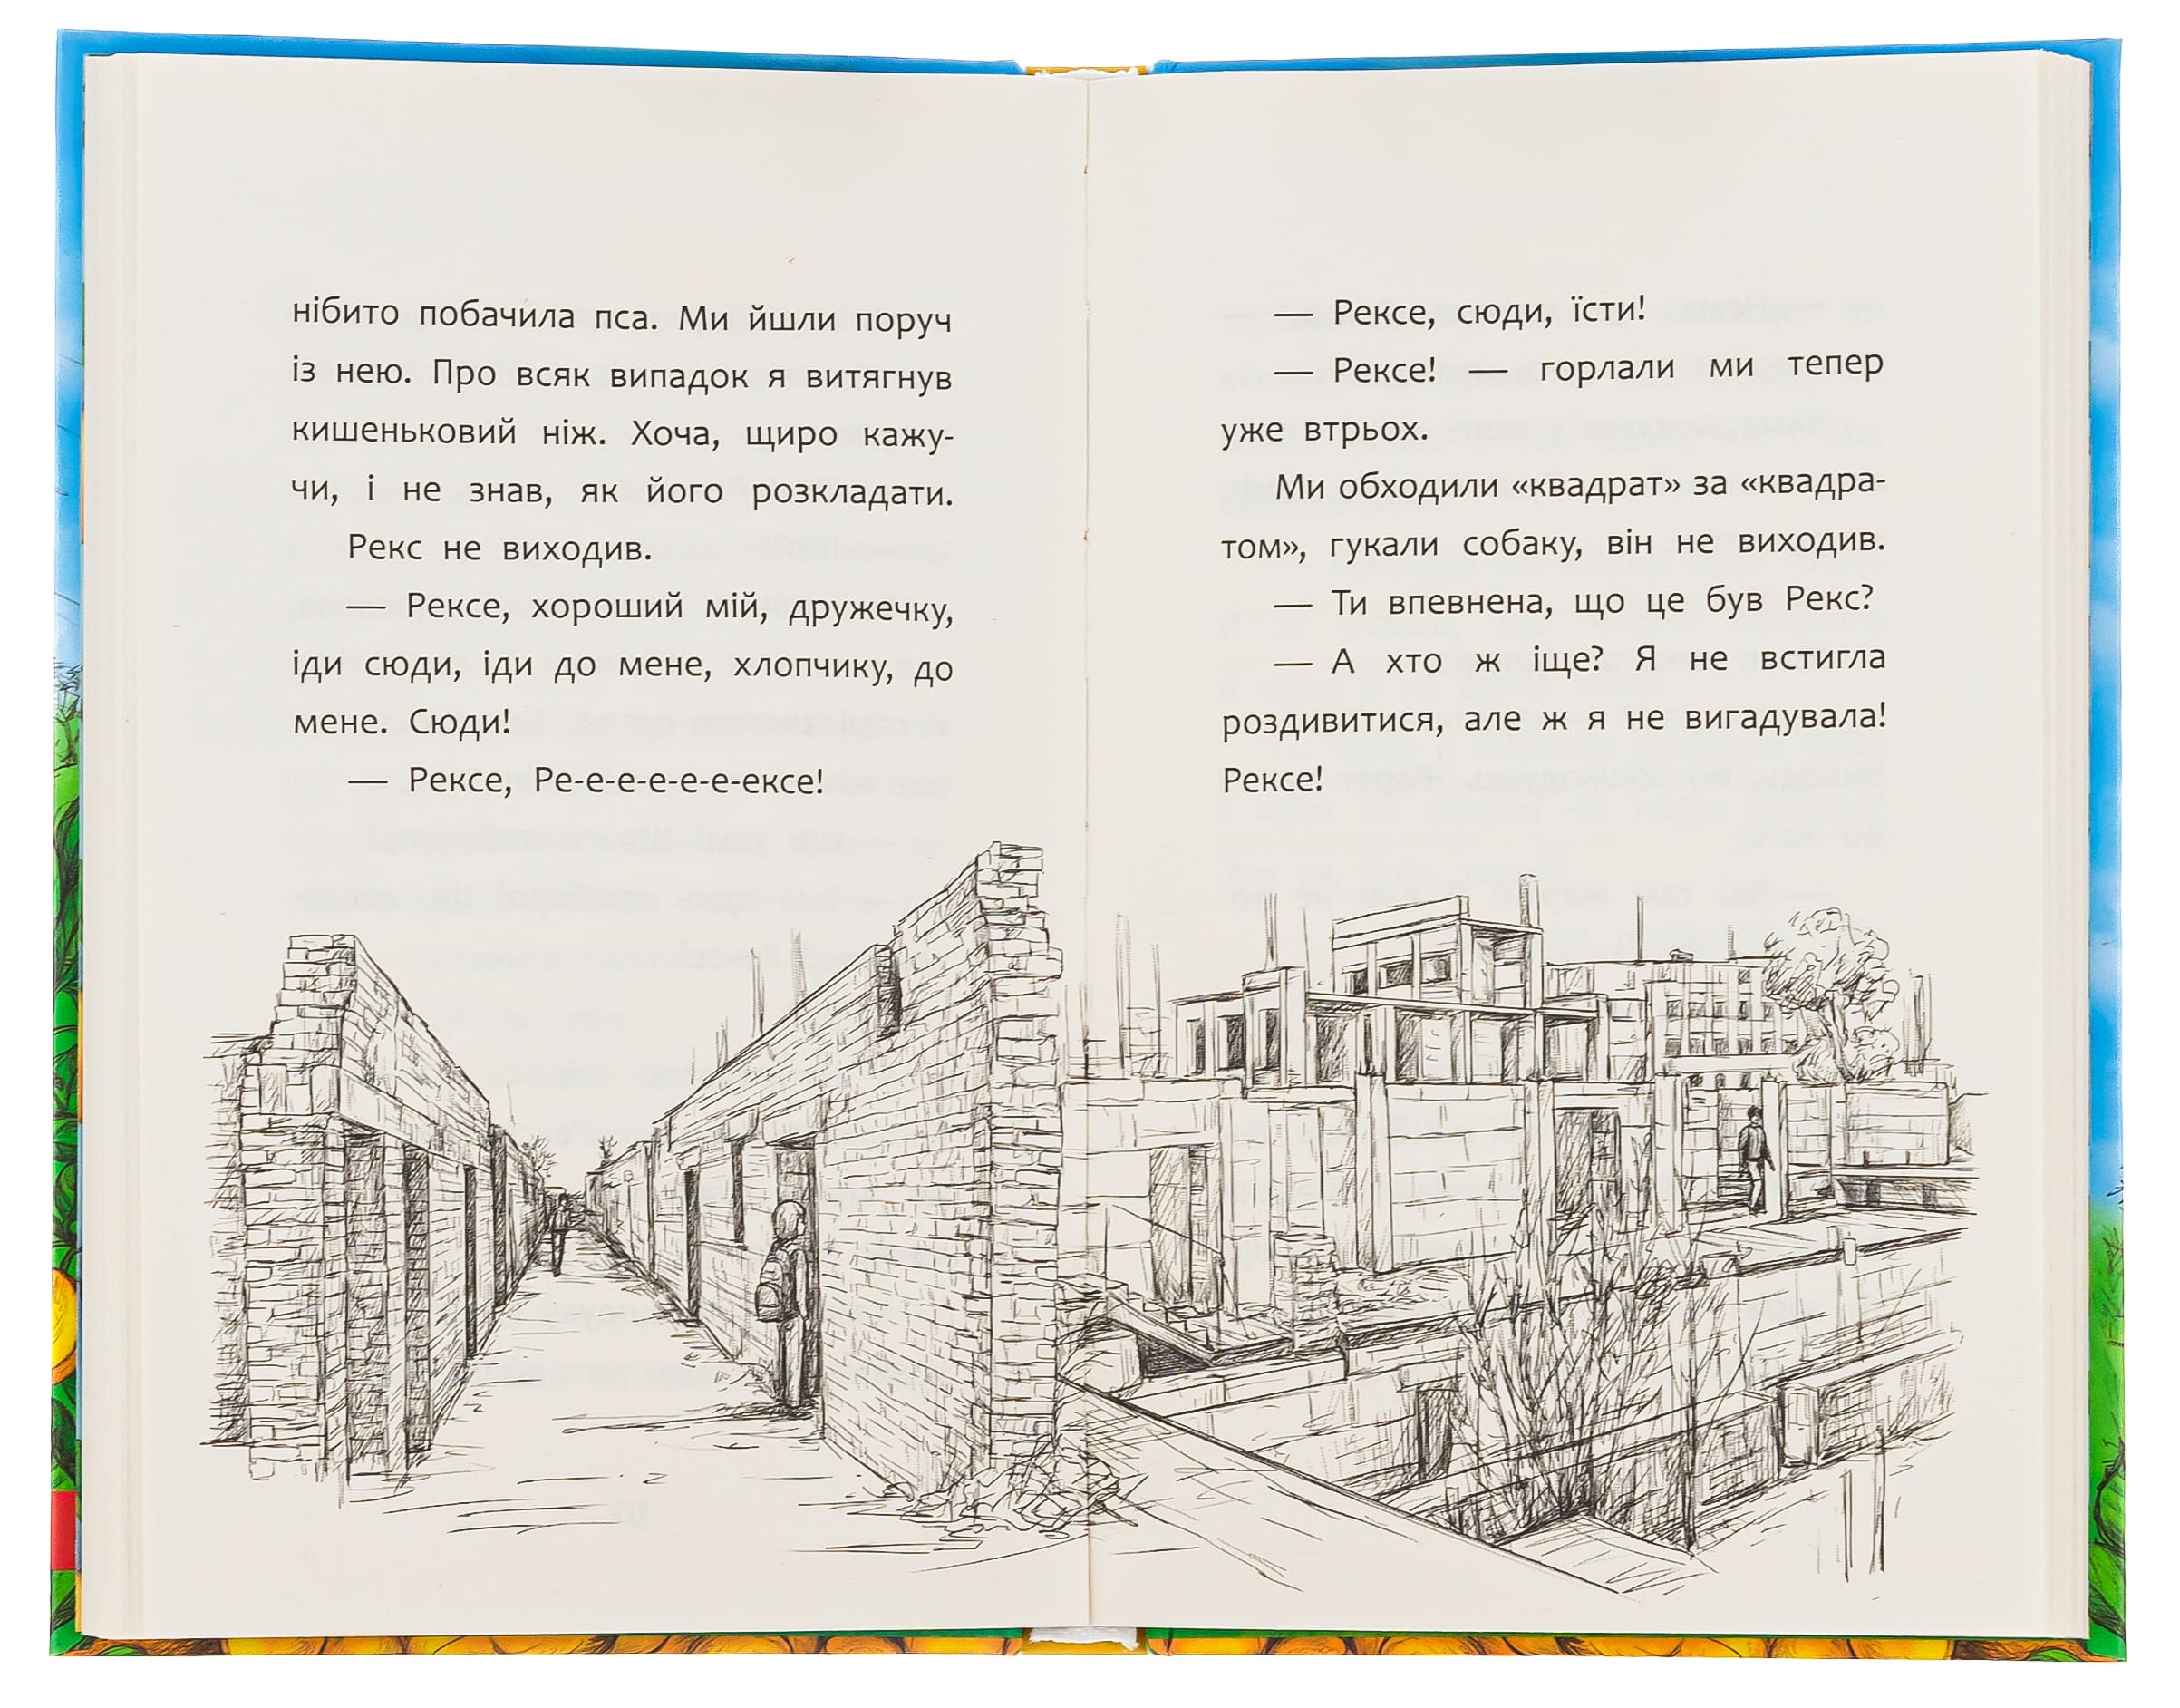 нібито побачила пса. Ми йшли поруч
із нею. Про всяк випадок я витягнув
кишеньковий ніж. Хоча, щиро кажу-
чи, і не знав, як його розкладати.
Рекс не виходив.
— Рексе, хороший мій, дружечку,
іди сюди, іди до мене, хлопчику, до
мене. Сюди!
— Рексе, Ре-е-е-е-е-е-ексе!
— Рексе, сюди, їсти!
— Рексе! — горлали ми тепер
уже втрьох.
Ми обходили «квадрат» за «квадра-
том», гукали собаку, він не виходив.
— Ти впевнена, що це був Рекс?
— А хто ж іще? Я не встигла
роздивитися, але ж я не вигадувала!
Рексе!